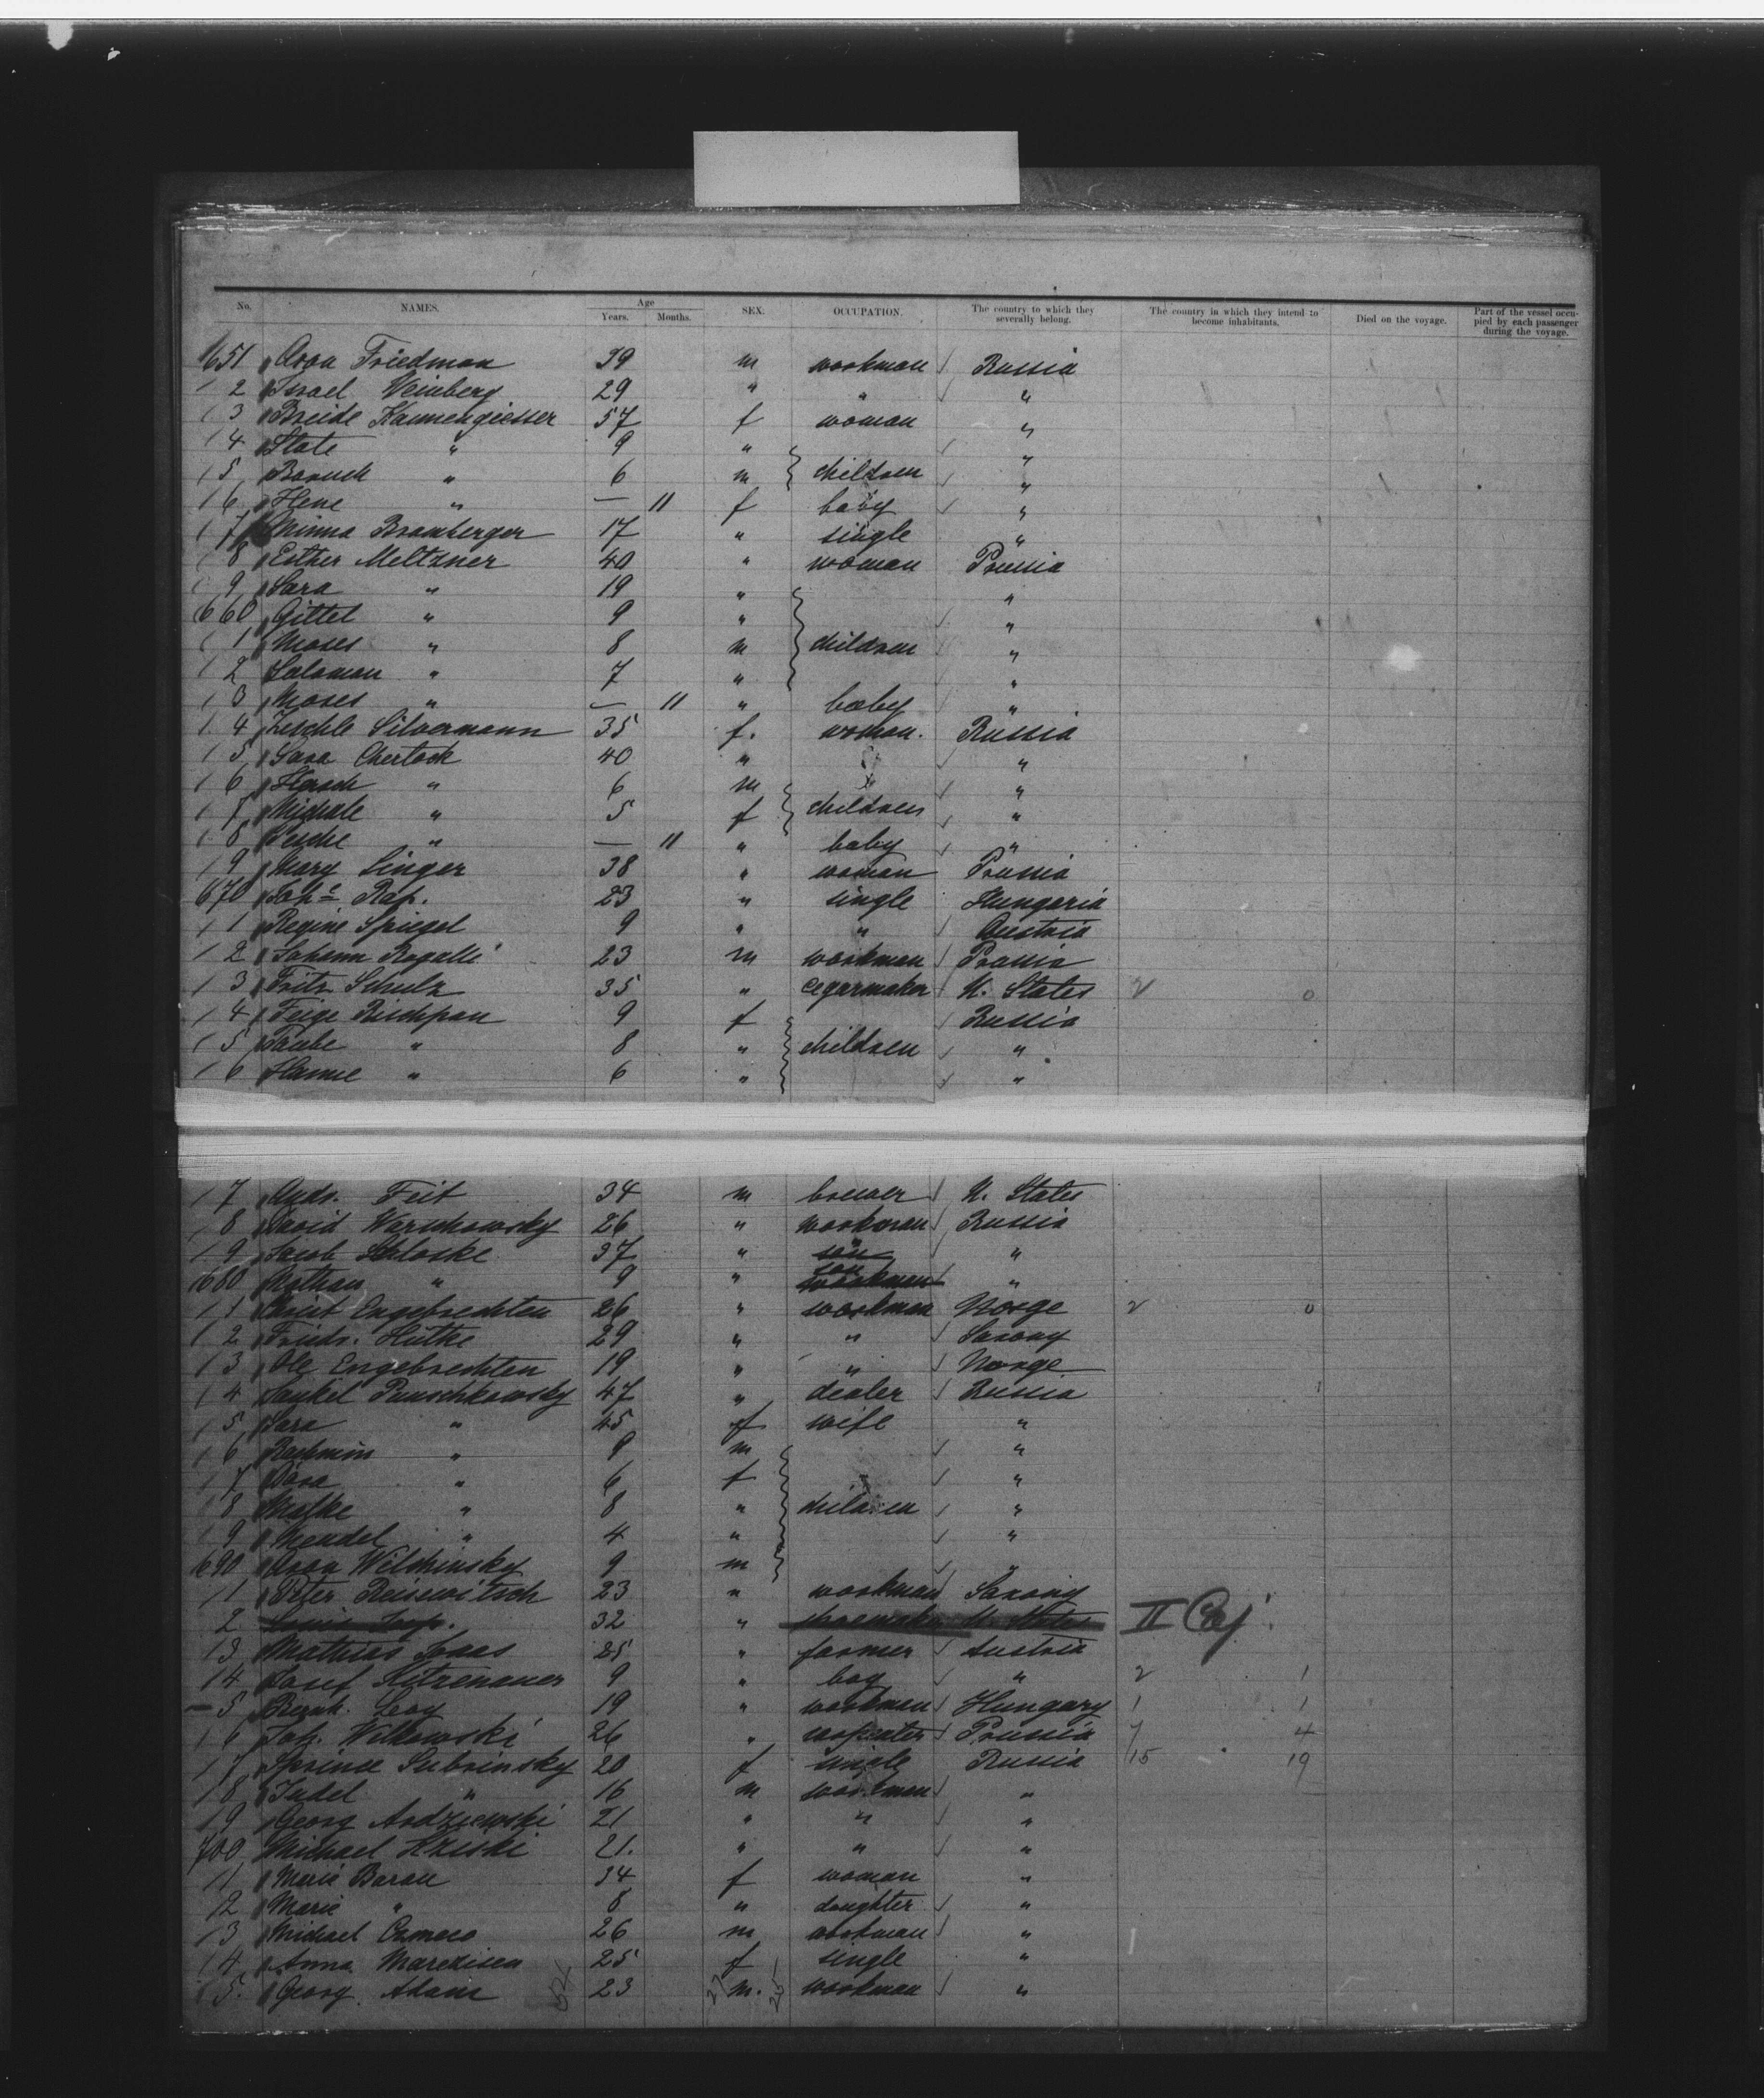 No. NAMES. Age Years. Months. SEX. OCCUPATION. The country to which they severally belong. The country in which they intend to become inhabitants. Died on the voyage. Part of the vessel occupied by each passenger during the voyage.
651 Aron Friedman 39 m workman Russia
2 Israel Weinberg 29 " " "
3 Breide Kannengiesser 57 f woman "
4 State " 9 " "
5 Boruch " 6 m children "
6 Hene " — 11 f baby "
7 Minna Bromberger 17 " single "
8 Esther Meltzner 40 " woman Prussia
9 Sara " 19 " "
660 Gittel " 9 " "
1 Moses " 8 m children "
2 Salomon " 7 " "
3 Moses " — 11 " baby "
4 Zeschle Silvermann 35 f. woman. Russia
5 Sara Chertock 40 " "
6 Hersch " 6 m "
7 Michale " 5 f children "
8 Pesche " — 11 " baby "
9 Mary Singer 38 " woman Prussia
670 Joh° Rap. 23 " single Hungaria
1 Regine Spiegel 9 " " Austria
2 Johann Rogalli 23 m workman Prussia
3 Fritz Schulz 35 " cegarmaker U. States
4 Feige Rischpan 9 f Russia
5 Taube " 8 " children "
6 Hanne " 6 " "
7 Andr. Feit 34 m brewer U. States
8 David Warschowsky 26 " workman Russia
9 Jacob 37 " "
680 Nathan " 9 " son workman "
1 Engebrechten 26 " workman Norge
2 Friedr. Hütke 29 " " Saxony
3 Ole Engebrechten 19 " " Norge
4 Jankel Pruschkowsky 47 " dealer Russia
5 Sara " 45 f wife "
6 " 9 m "
7 " 6 f "
8 Malke " 8 " children "
9 Mendel " 4 " "
690 Aron Wilchinsky 9 m "
1 Peter Reisewitsch 23 " workman Saxony
2 32 " U. States II Caj.
3 Mathias 25 " farmer Austria
4 Josef Kitzenauer 9 " boy " 2 1
5 Bernh. Levy 19 " workman Hungary 1 1
6 Joh. Wilkowski 26 " carpenter Prussia 7 4
7 Sprince Subrinsky 20 f single Russia 15 19
8 Judel " 16 m workman "
9 Georg Andziewski 21 " " "
700 Michael 21. " " "
1 Marie Baran 34 f woman "
2 Marie " 8 " daughter "
3 Michael 26 m workman "
4 Anna 25 f single "
5. Georg Adam 23 m. workman "